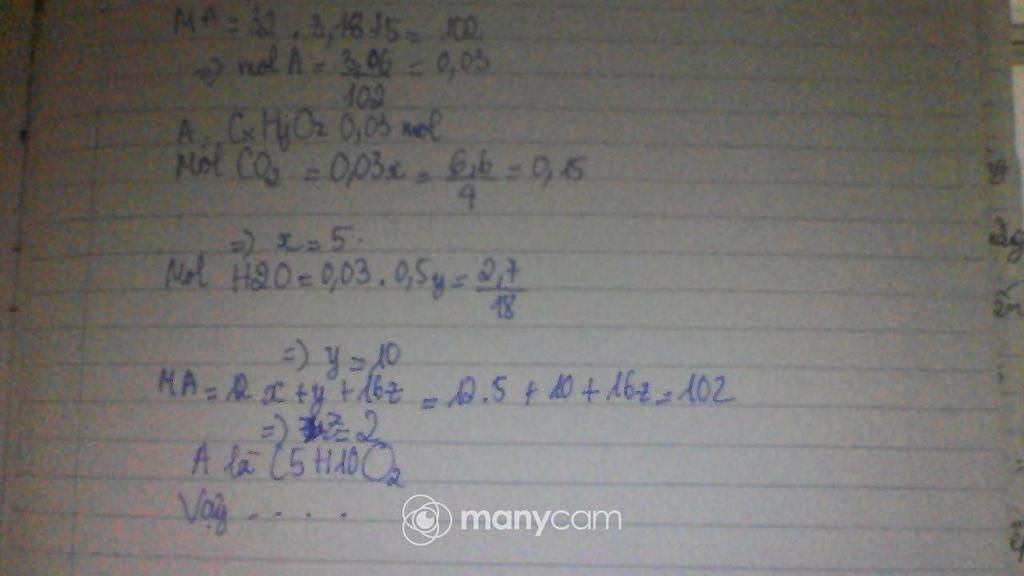 MA = 32 . 3,1875 = 102
=) mol A = 3,06/102 = 0,03
A : CxHyOz 0,03 mol
Mol CO2 = 0,03x = 6,6/4 = 0,15
=) x = 5.
Mol H2O = 0,03 . 0,5y = 2,7/18
=) y = 10
MA = 12 x + y + 16z = 12.5 + 10 + 16z = 102
=) z = 2
A là C5H10O2
Vậy . . . . .
manycam